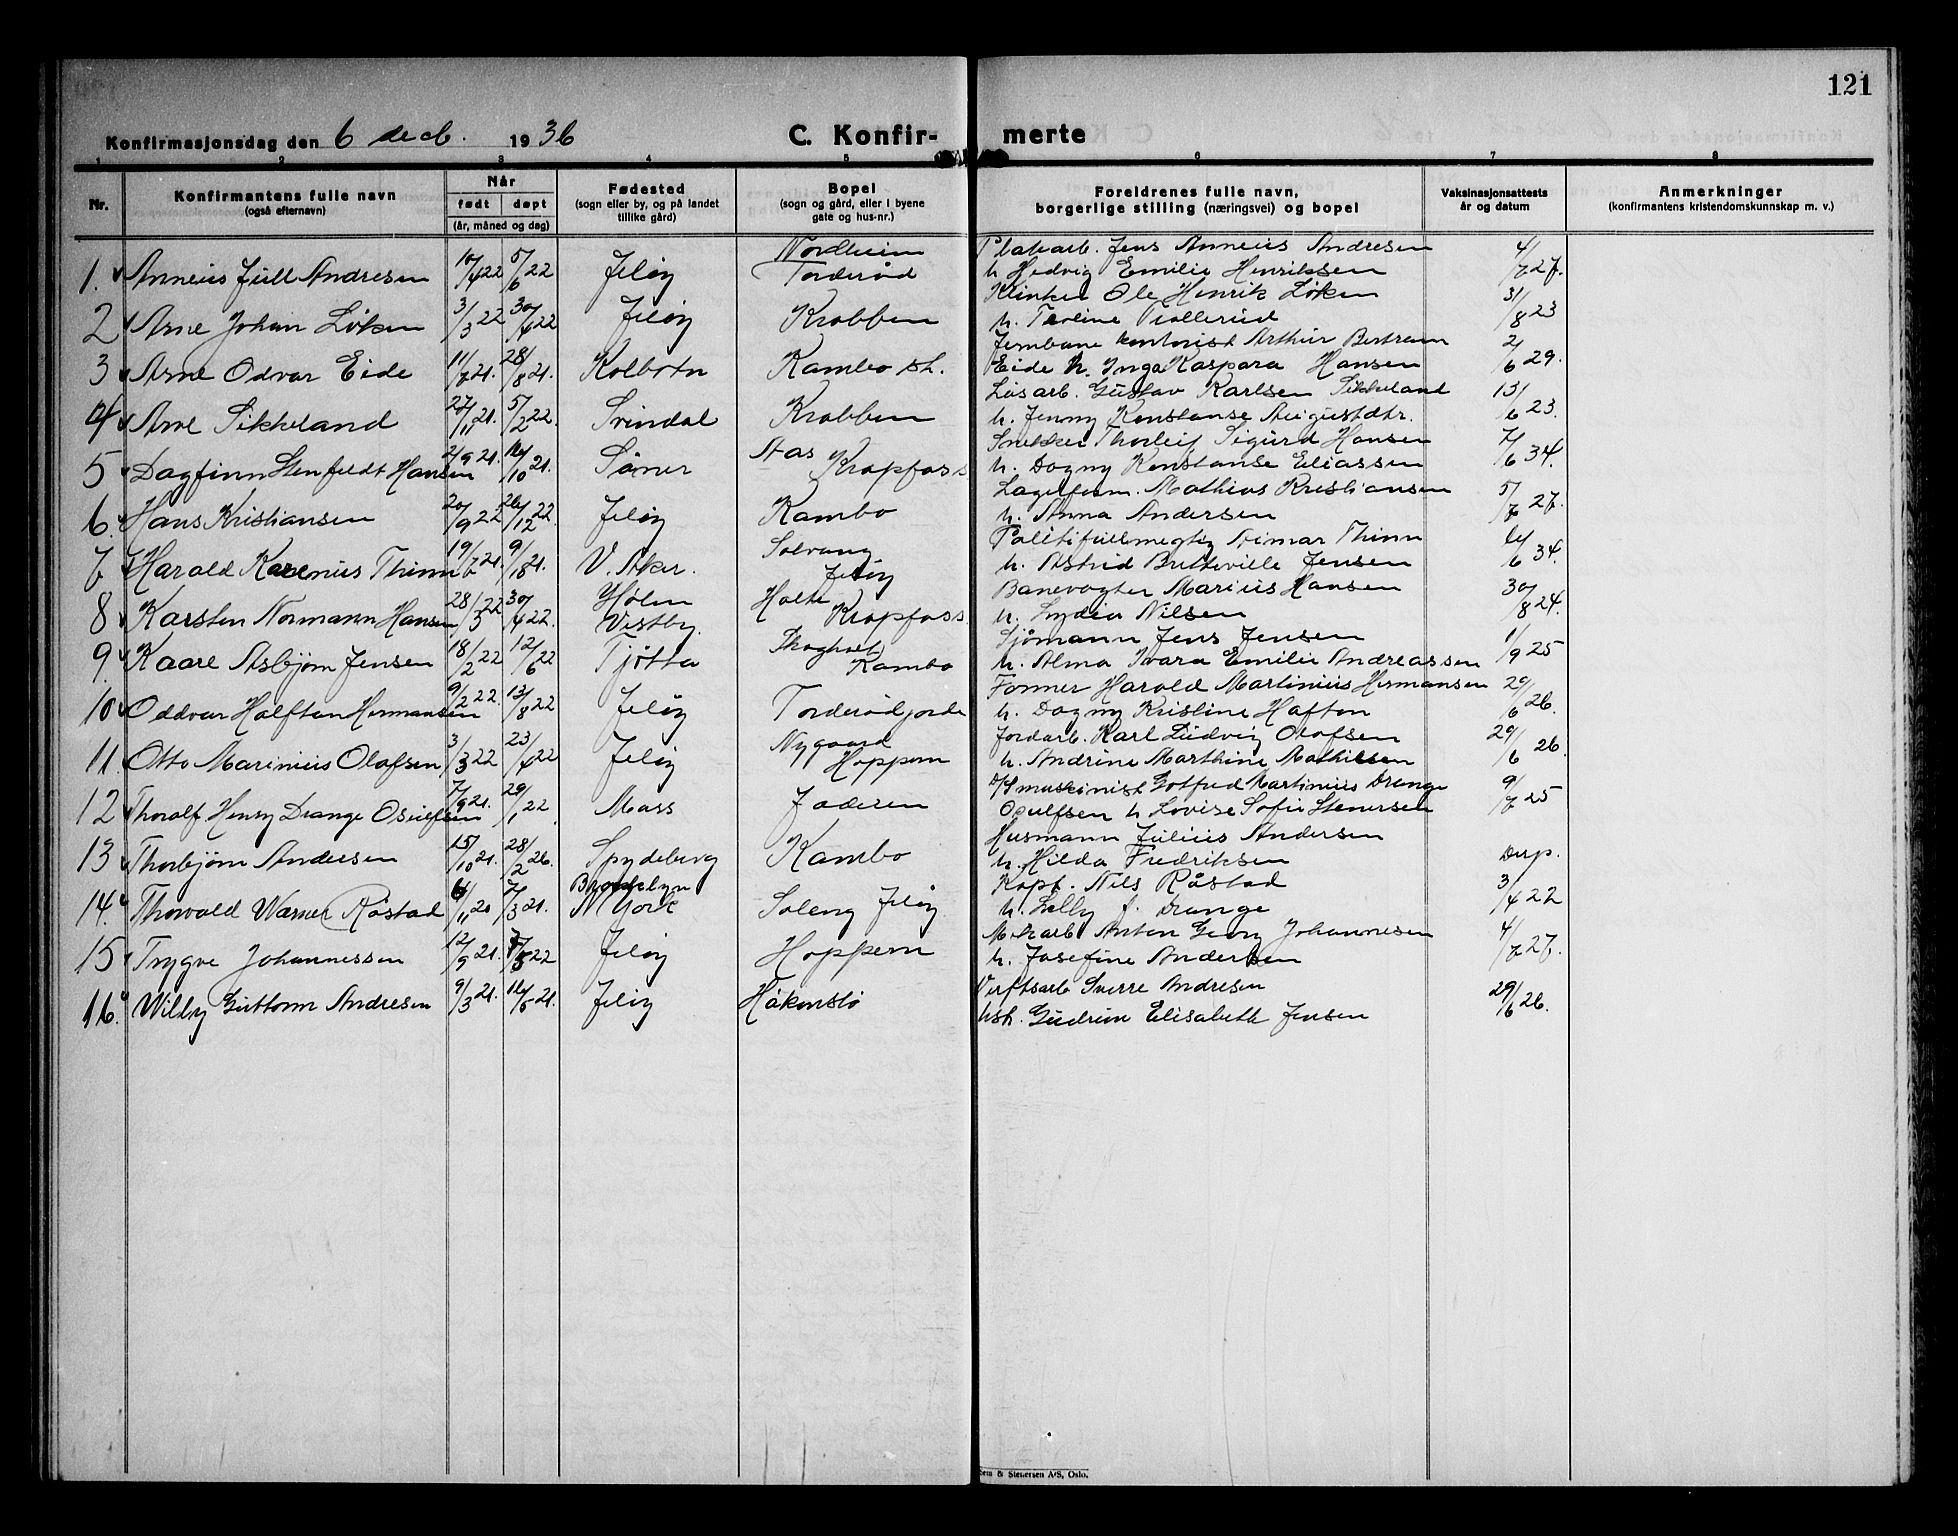 121
Konfirmasjonsdag den 6 decb. 1936
C. Konfir- merte
1 2 3 4 5 6 7 8
Nr.
Konfirmantens fulle navn
(også efternavn)
Når
født døpt
(år, måned og dag)
Fødested
(sogn eller by, og på landet
tillike gård)
Bopel
(sogn og gård, eller i byene
gate og hus-nr.)
Foreldrenes fulle navn,
borgerlige stilling (næringsvei) og bopel
Vaksinasjonsattests
år og datum
Anmerkninger
(konfirmantens kristendomskunnskap m. v.)
1. Anneus Jull Andresen 10/4 22 5/6 22 Jeløy Nordheim Torderød
Platearb. Jens Anneus Andresen 4/7 27.
h. Hedvig Emilie Henriksen
2 Arne Johan Løken 3/3 22 30/4 22 Jeløy Krobben
Klinker Ole Henrik Løken 31/8 23
h. Teoline Tollerud
3 Arne Odvar Eide 11/7 21. 28/8 21. Kolbotn Kambo st.
Jernbane kontorist Arthur Bertram 2/6 29.
Eide h. Inga Kaspara Hansen
4 Arve Sikkeland 27/11 21. 5/2 22. Svindal Krobben
Løsarb. Gustav Karlsen Sikkeland 13/6 23.
h. Jenny Konstanse Augustdtr.
5 Dagfinn Stenfeldt Hansen 2/9 21. 16/10 21. Såner Aas Kropfoss
Snekker Thorleif Sigurd Hansen 7/6 34.
h. Dagny Konstanse Eliassen
6. Hans Kristiansen 20/9 22 26/12 22 Jeløy Kambo
Lagerform. Mathias Kristiansen 5/7 27.
h. Anna Andersen
7 Harald Karenius Thinn 19/7 21. 9/10 21. V. Aker. Solvang Jeløy
Politifullmegtig Thinn 14/6 34.
h. Astrid Butteville Jensen
8 Karsten Normann Hansen 28/3 22 30/4 22. Hølen Vestby. Holte Kropfoss
Banevogter Marius Hansen 30/8 24.
h. Lydia Nilsen
9. Kaare Asbjørn Jensen 18/2 22 12/6 22 Tjøtta Skogholt Kambo
Sjømann Jens Jensen 1/9 25
h. Alma Ivara Emilie Andreassen
10 Oddvar Halften Hermansen 9/2 22. 13/8 22 Jeløy Torderødjorde
Former Harald Martinius Hermansen 29/6 26.
h. Dagny Kristine Haften
11. Otto Marinius Olafsen 3/3 22 23/4 22 Jeløy Nygaard Hoppern
Jordarb. Karl Ludvig Olafsen 29/6 26.
h. Andrine Marthine Mathiesen
12 Thoralf Henry Drange Osulfsen 7/9 21. 29/1 22. Moss Jaderen
Gotfred Martinius Drange 9/7 25
Osulfsen h. Lovise Sofie Stenersen
13 Thorbjørn Andersen 15/10 21. 28/2 26. Spydeberg Kambo
Husmann Julius Andersen Disp.
h. Hilda Fredriksen
14. Thorvald Warner Røstad 6/11 20 7/3 21. Brooklyn N York Soleng Jeløy
Kapt. Nils Røstad 3/4 22
h. Lelly f. Drange
15 Trygve Johannessen 12/9 21. 7/5 22 Jeløy Hoppern
Mekarb Anton Georg Johannesen 4/7 27.
h. Josefine Andersen
16. Willy Guttorm Andresen 9/3 21. 16/5 21. Jeløy Håkenslø
Verftsarb Sverre Andresen 29/6 26.
hst. Gudrun Elisabeth Jensen
Sem & Stenersen A/S, Oslo.